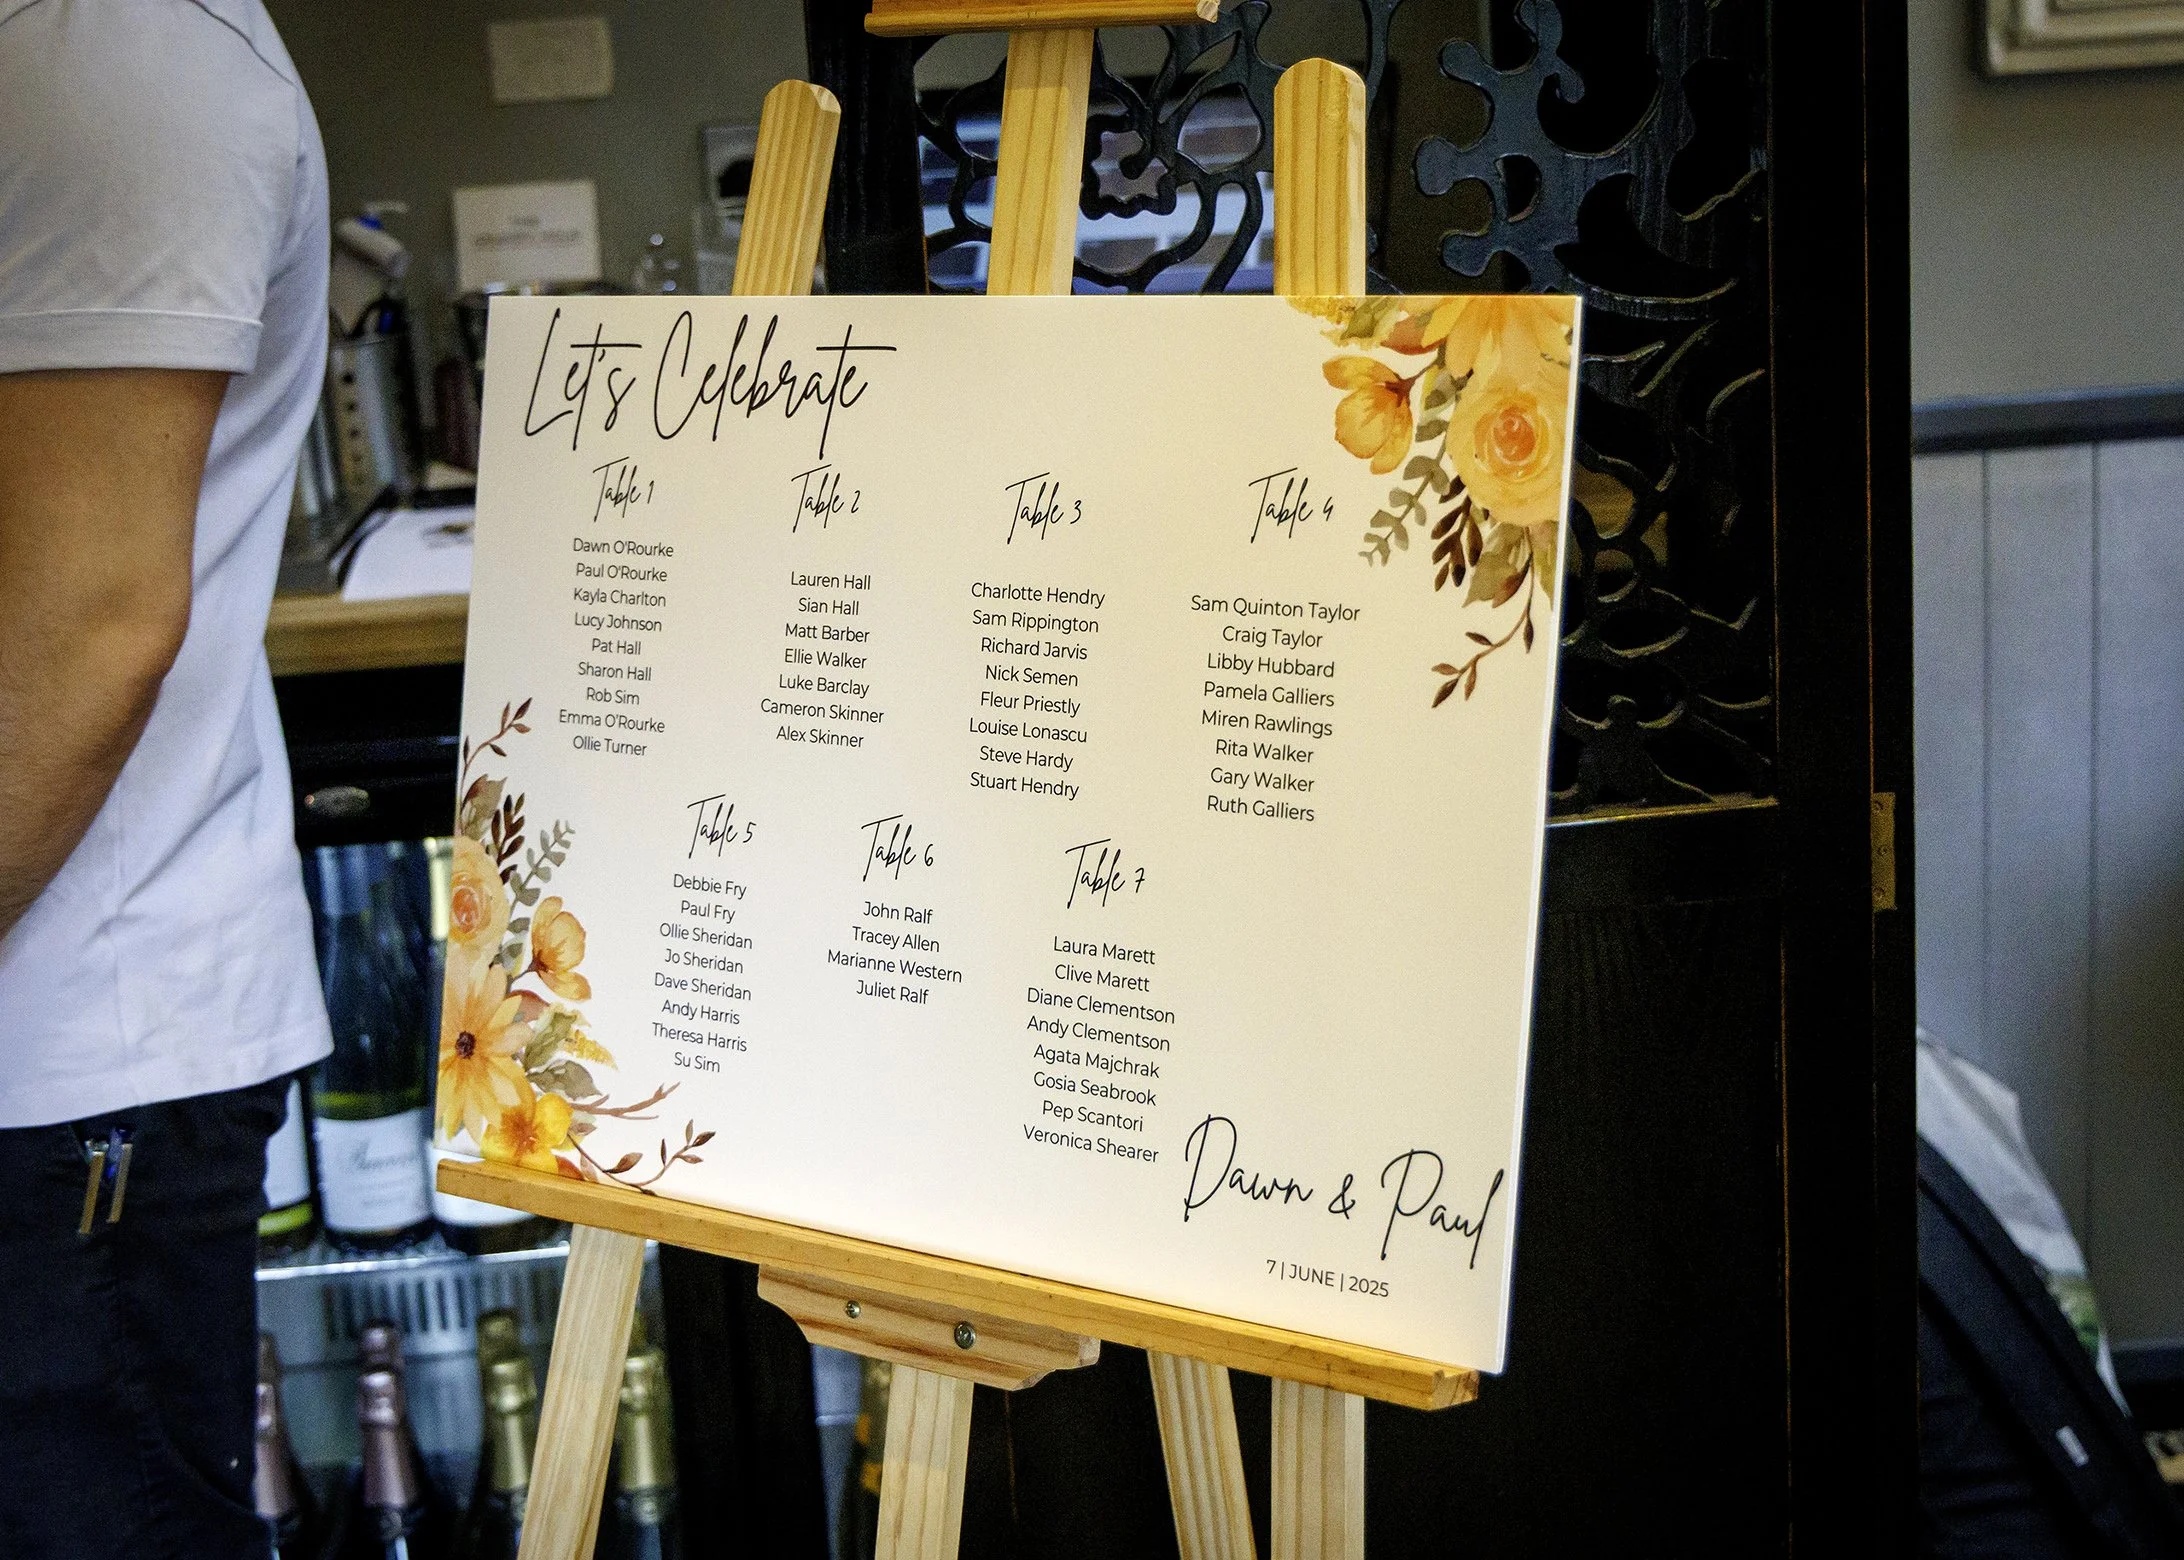 Let's Celebrate
Table 1
Dawn O'Rourke
Paul O'Rourke
Kayla Charlton
Lucy Johnson
Pat Hall
Sharon Hall
Rob Sim
Emma O'Rourke
Ollie Turner
Table 2
Lauren Hall
Sian Hall
Matt Barber
Ellie Walker
Luke Barclay
Cameron Skinner
Alex Skinner
Table 3
Charlotte Hendry
Sam Rippington
Richard Jarvis
Nick Semen
Fleur Priestly
Louise Lonascu
Steve Hardy
Stuart Hendry
Table 4
Sam Quinton Taylor
Craig Taylor
Libby Hubbard
Pamela Galliers
Miren Rawlings
Rita Walker
Gary Walker
Ruth Galliers
Table 5
Debbie Fry
Paul Fry
Ollie Sheridan
Jo Sheridan
Dave Sheridan
Andy Harris
Theresa Harris
Su Sim
Table 6
John Ralf
Tracey Allen
Marianne Western
Juliet Ralf
Table 7
Laura Marett
Clive Marett
Diane Clementson
Andy Clementson
Agata Majchrak
Gosia Seabrook
Pep Scantori
Veronica Shearer
Dawn & Paul
7 | JUNE | 2025